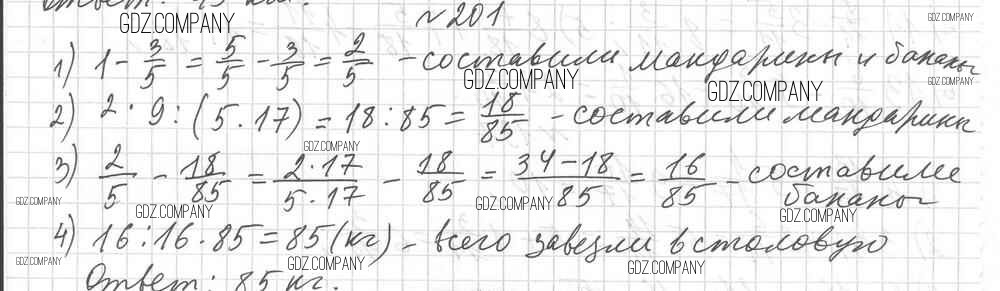 Ответ: 45 кг.
№201
GDZ.COMPANY GDZ.COMPANY
1) 1 - 3/5 = 5/5 - 3/5 = 2/5 - составили мандарины и бананы
GDZ.COMPANY GDZ.COMPANY GDZ.COMPANY
2) 2 · 9 : (5 · 17) = 18 : 85 = 18/85 - составили мандарины
GDZ.COMPANY
3) 2/5 - 18/85 = 2·17/5·17 - 18/85 = 34-18/85 = 16/85 - составили бананы
GDZ.COMPANY GDZ.COMPANY GDZ.COMPANY GDZ.COMPANY
4) 16 : 16 · 85 = 85 (кг) - всего завезли в столовую
GDZ.COMPANY GDZ.COMPANY GDZ.COMPANY
Ответ: 85 кг.